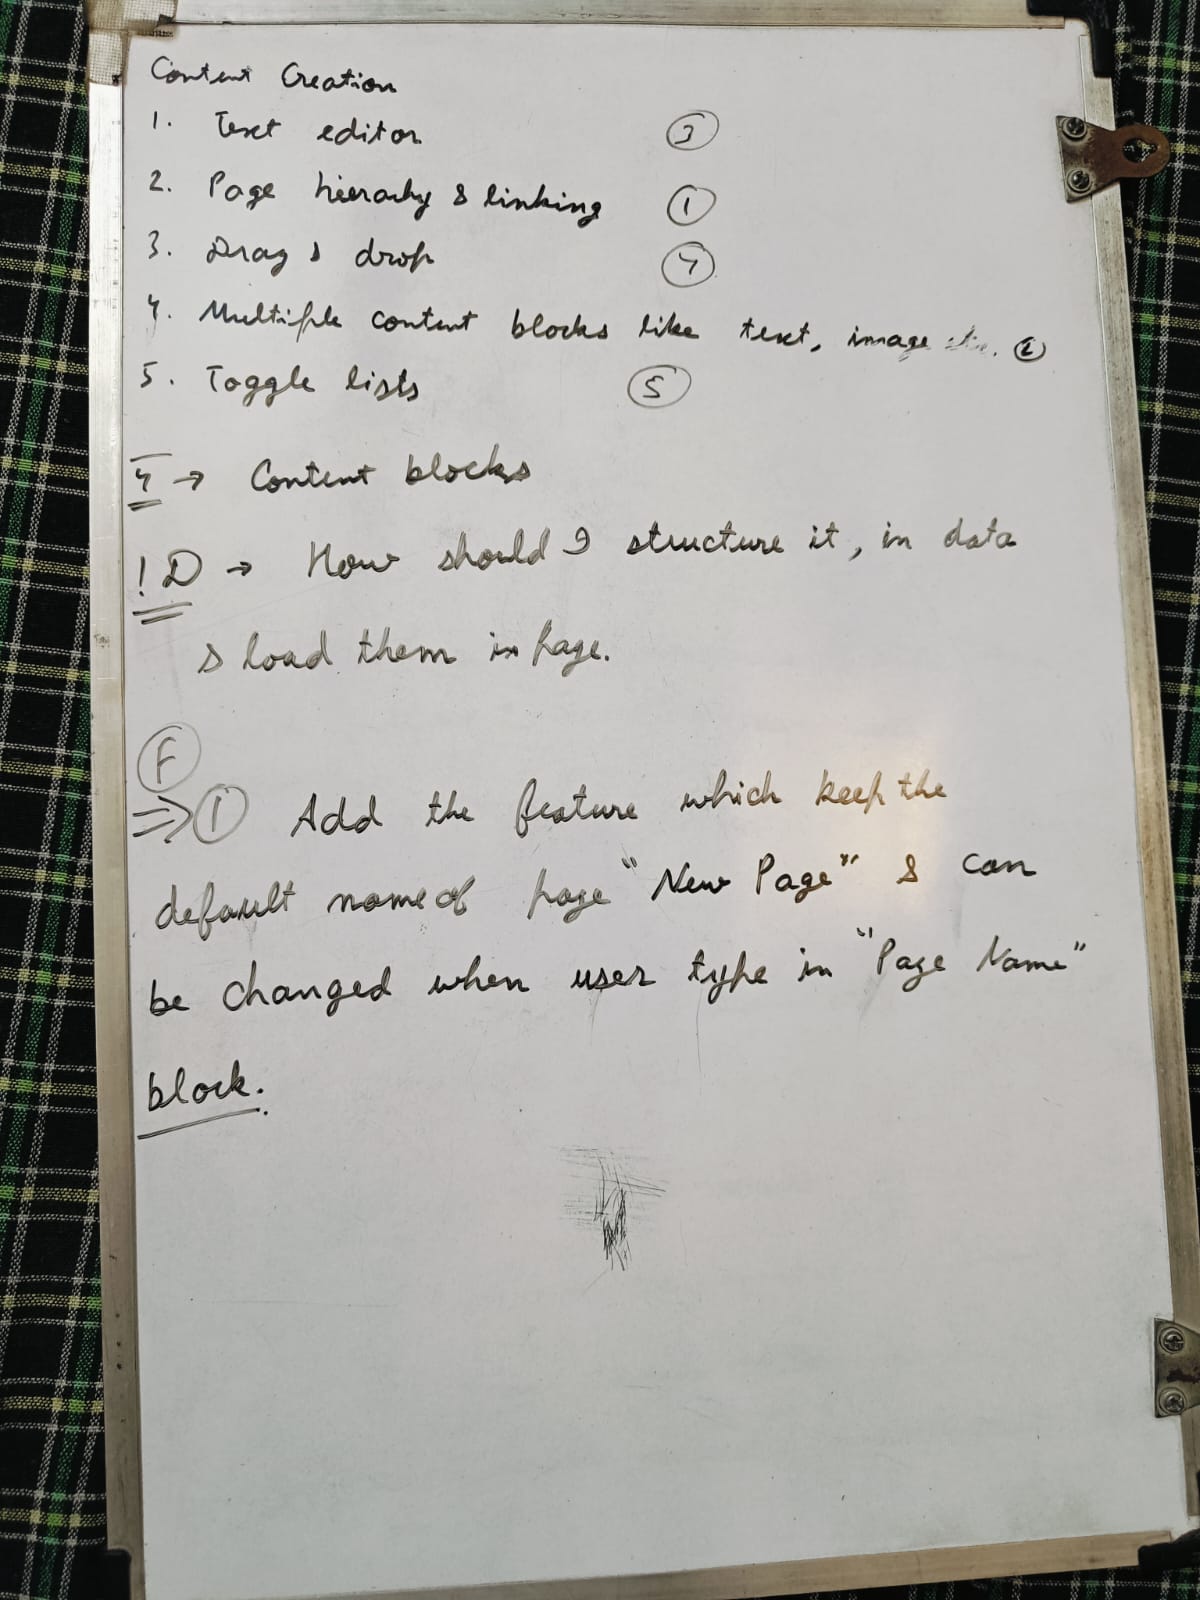 Content Creation
1. Text editor ③
2. Page hierachy & linking ①
3. Drag & drop ④
4. Multiple content blocks like text, image ②
5. Toggle lists ⑤
4 → Content blocks
!D → How should I structure it, in data
& load them in page.
Ⓕ
⇒ ① Add the feature which keep the
default name of page "New Page" & can
be changed when user type in "Page Name"
block.